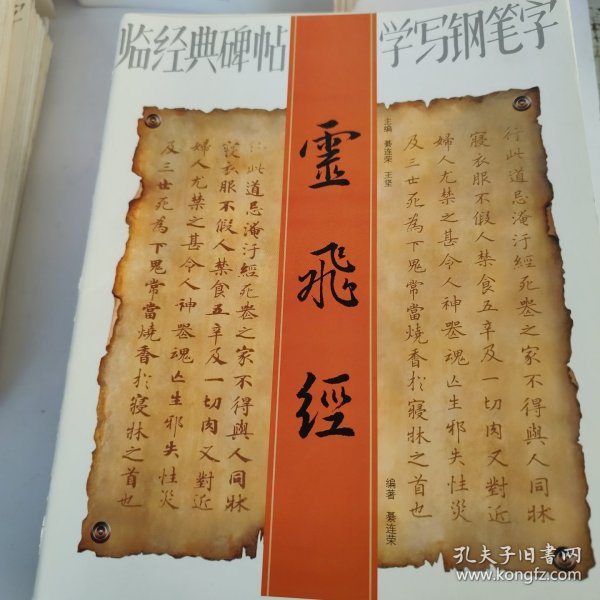 临经典碑帖 学写钢笔字
靈飛經
主编 綦连荣 王坚
编著 綦连荣
行此道忌淹汙經死喪之家不得與人同牀
寢衣服不假人禁食五辛及一切肉又對近
婦人尤禁之甚令人神喪魂亡生邪失性災
及三世死為下鬼常當燒香於寢牀之首也
行此道忌淹汙經死喪之家不得與人同牀
寢衣服不假人禁食五辛及一切肉又對近
婦人尤禁之甚令人神喪魂亡生邪失性災
及三世死為下鬼常當燒香於寢牀之首也
孔夫子旧书网
www.kongfz.com